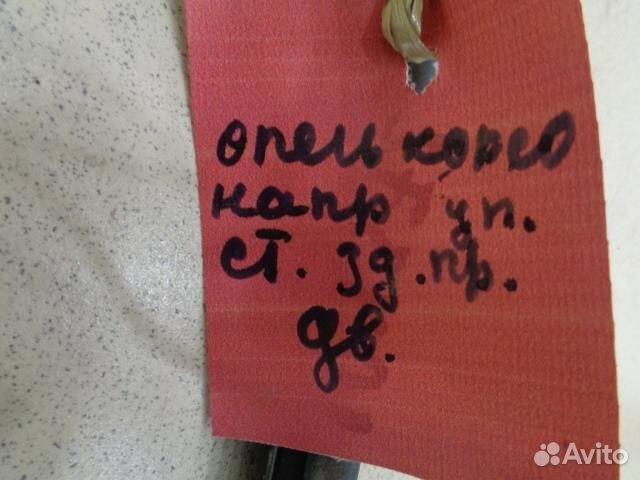 опель корсо
напр уп.
ст. зд.пр.
дв.
Avito